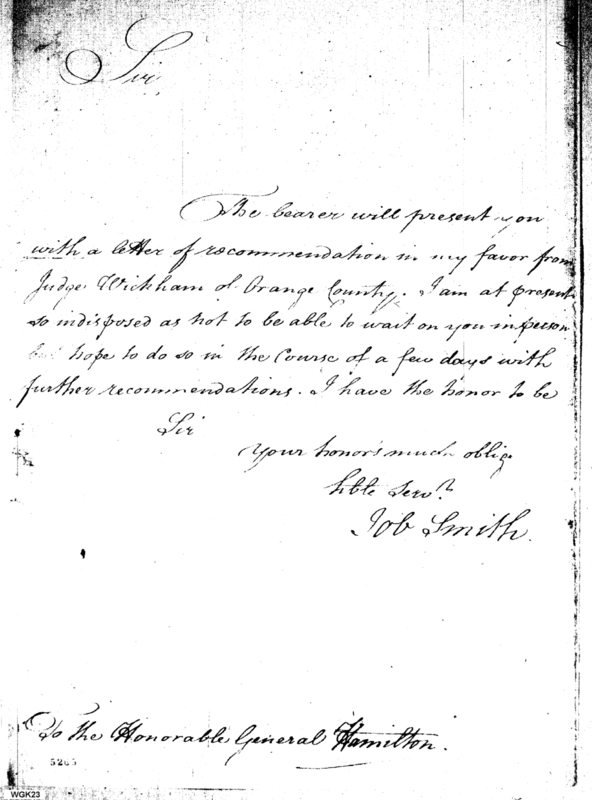 Sir
The bearer will present you
with a letter of recommendation in my favor from
Judge Wickham of Orange County. I am at present
so indisposed as not to be able to wait on you in person
but hope to do so in the Course of a few days with
further recommendations. I have the honor to be
Sir
Your honor's much oblig
hble Servt.
Job Smith.
To The Honorable General Hamilton.
5265
WGK23